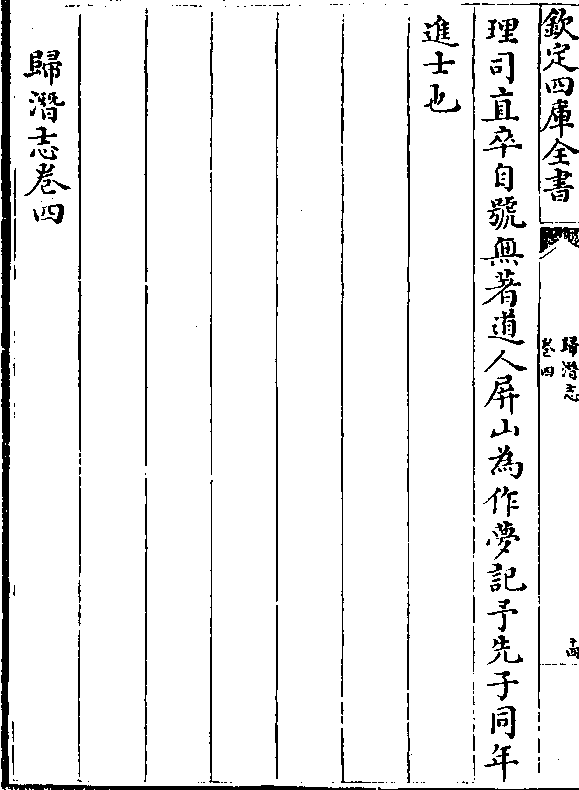 欽定四庫全書
歸潛志
卷四
理司直卒自號無著道人屏山為作夢記予先子同年
進士也
歸潛志卷四